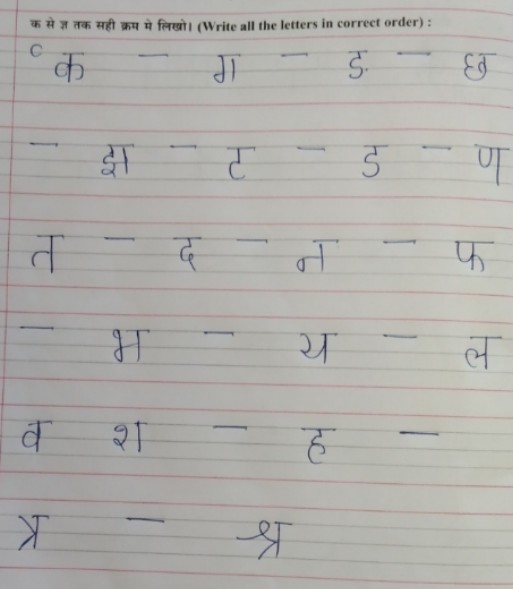 क से ज्ञ तक सही क्रम मे लिखो। (Write all the letters in correct order) :
c क – ग – ङ – छ
– झ – ट – ड – ण
त – द – न – फ
– भ – य – ल
व श – ह –
त्र – श्र